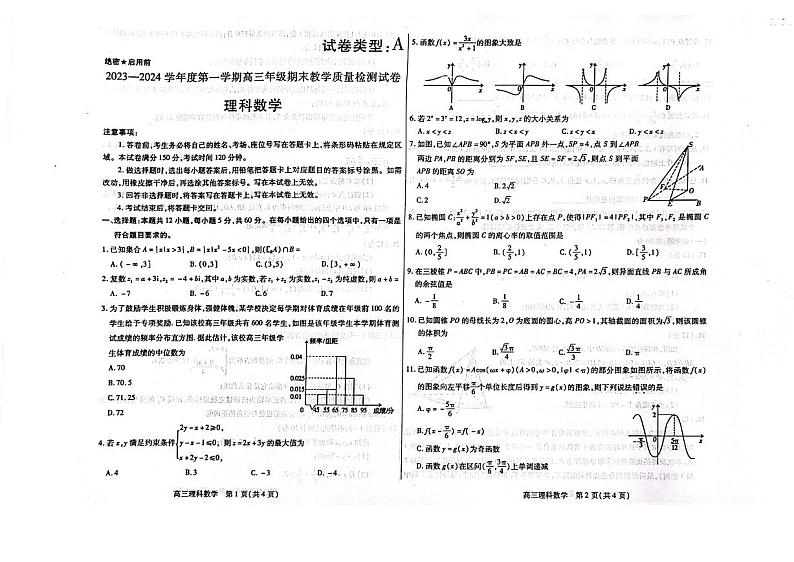 试卷类型:A
绝密★启用前
2023—2024 学年度第一学期高三年级期末教学质量检测试卷
理科数学
注意事项:
1. 答卷前,考生务必将自己的姓名、考场、座位号写在答题卡上,将条形码粘贴在规定区
域。本试卷满分 150 分,考试时间 120 分钟。
2. 做选择题时,选出每小题答案后,用铅笔把答题卡上对应题目的答案标号涂黑。如需
改动,用橡皮擦干净后,再选涂其他答案标号。写在本试卷上无效。
3. 回答非选择题时,将答案写在答题卡上,写在本试卷上无效。
4. 考试结束后,将答题卡交回。
一、选择题:本题共 12 小题,每小题 5 分,共 60 分。在每小题给出的四个选项中,只有一项是
符合题目要求的。
1. 已知集合 A={x|x>3},B={x|x²-5x<0},则(∁RA)∩B=
A. (-∞,3] B. (0,3] C. (3,5) D. (0,5)
2. 复数 z₁=a+3i,z₂=-4+bi,其中 a,b 为实数,若 z₁+z₂ 为实数,z₁-z₂ 为纯虚数,则 a+b=
A. -7 B. -6 C. 6 D. 7
3. 为了鼓励学生积极锻炼身体,强健体魄,某学校决定每学期对体育成绩在年级前 100 名的
学生给予专项奖励. 已知该校高三年级共有 600 名学生,如图是该年级学生本学期体育测
试成绩的频率分布直方图. 据此估计,该校高三年级学
生体育成绩的中位数为
A. 70
B. 70.5
C. 71.25
D. 72
频率/组距
0.04
0.025
0.015
0.01
0 45 55 65 75 85 95 成绩/分
4. 若 x,y 满足约束条件 {y-x+2≥0, y-x-1≤0, x+2y-2≤0, 则 z=2x+3y 的最大值为
A. 4 B. 3 C. -3 D. -4
高三理科数学 第 1 页(共 4 页)
5. 函数 f(x)=3x/(x²+1) 的图象大致是
A B C D
6. 若 2ˣ=3ʸ=12,z=logₓy,则 x,y,z 的大小关系为
A. x<y<z B. z<x<y C. z<y<x D. y<z<x
7. 如图,已知∠APB=90°,S 为平面 APB 外一点,SP=4,点 S 到∠APB
两边 PA,PB 的距离分别为 SF,SE,且 SE=SF=2√3,则点 S 到平面
APB 的距离 SO 为
A. 4 B. 2√2
C. 2 D. √2
8. 已知椭圆 C:x²/a²+y²/b²=1(a>b>0)上存在点 P,使得|PF₁|=4|PF₂|,其中 F₁,F₂ 是椭圆 C
的两个焦点,则椭圆 C 的离心率的取值范围是
9. 在三棱锥 P-ABC 中,PB=PC=AB=AC=BC=4,PA=2√3,则异面直线 PB 与 AC 所成角
的余弦值是
A. -1/8 B. 1/8 C. -1/4 D. 1/4
10. 已知圆锥 PO 的母线长为 2,O 为底面的圆心,高 PO>1,其轴截面的面积为√3,则该圆锥
的体积为
11. 已知函数 f(x)=Acos(ωx+φ)(A>0,ω>0,|φ|<π)的部分图象如图所示,将函数 f(x)
的图象向左平移π/6个单位长度后得到 y=g(x)的图象,则下列说法错误的是
A. φ=-5π/6
B. f(x-π/6)=f(-x)
C. 函数 y=g(x)为奇函数
D. 函数 f(x)在区间(π/6,3π/4)上单调递减
高三理科数学 第 2 页(共 4 页)